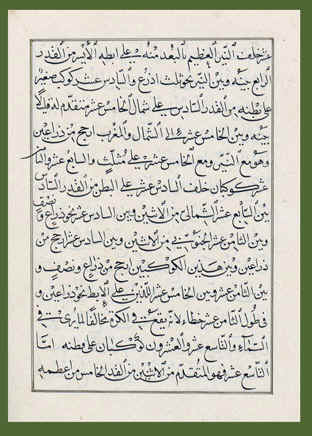 عشر خلف النير العظيم بالبعد منه على ابطه الأيسر من القدر
الرابع بينه وبين النير نحو ثلث اذرع والسادس عشر كوكب صغير
على بطنه من القدر السادس على شمال الخامس عشر متقدم له قليلا
بينه وبين الخامس عشر الى الشمال والمغرب ارجح من ذراعين
وهو مع النير ومع الخامس عشر على مثلث والسابع عشر والثامن
عشر كوكبان خلف السادس عشر على البطن من القدر السادس
بين السابع عشر الشمالى من الاثنين وبين السادس عشر نحو ذراع ونصف
وبين الثامن عشر الجنوبى من الاثنين وبين السادس عشر ارجح من
ذراعين وبين هذين الكوكبين ارجح من ذراع ونصف و
بين الثامن عشر وبين الخامس عشر الذى على الابط نحو ذراعين و
فى طول الثامن عشر خطاء لانه يقع فى الكرة مخالفا لما يرى فى
السماء والتاسع عشر والعشرون كوكبان على بطنه اما
التاسع عشر فهو المتقدم من الاثنين من القدر الخامس من اعظمه